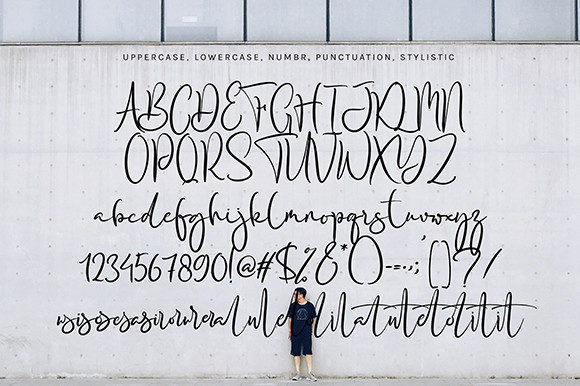 UPPERCASE, LOWERCASE, NUMBR, PUNCTUATION, STYLISTIC
ABCDEFGHIJKLMN
OPQRSTUVWXYZ
abcdefghijklmnopqrstuvwxyz
1234567890!@#$%&*()-=.,;'[]?/